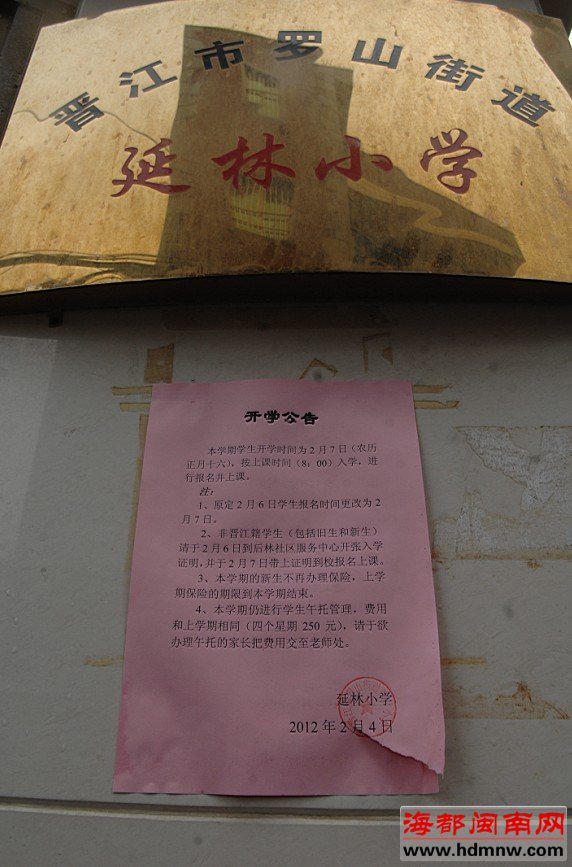 晋江市罗山街道
延林小学
开学公告
本学期学生开学时间为2月7日（农历
正月十六），按上课时间（8：00）入学，进
行报名并上课。
注：
1、原定2月6日学生报名时间更改为2
月7日。
2、非晋江籍学生（包括旧生和新生）
请于2月6日到后林社区服务中心开张入学
证明，并于2月7日带上证明到校报名上课。
3、本学期的新生不再办理保险，上学
期保险的期限到本学期结束。
4、本学期仍进行学生午托管理，费用
和上学期相同（四个星期250元），请于欲
办理午托的家长把费用交至老师处。
延林小学
2012年2月4日
海都闽南网
www.hdmnw.com